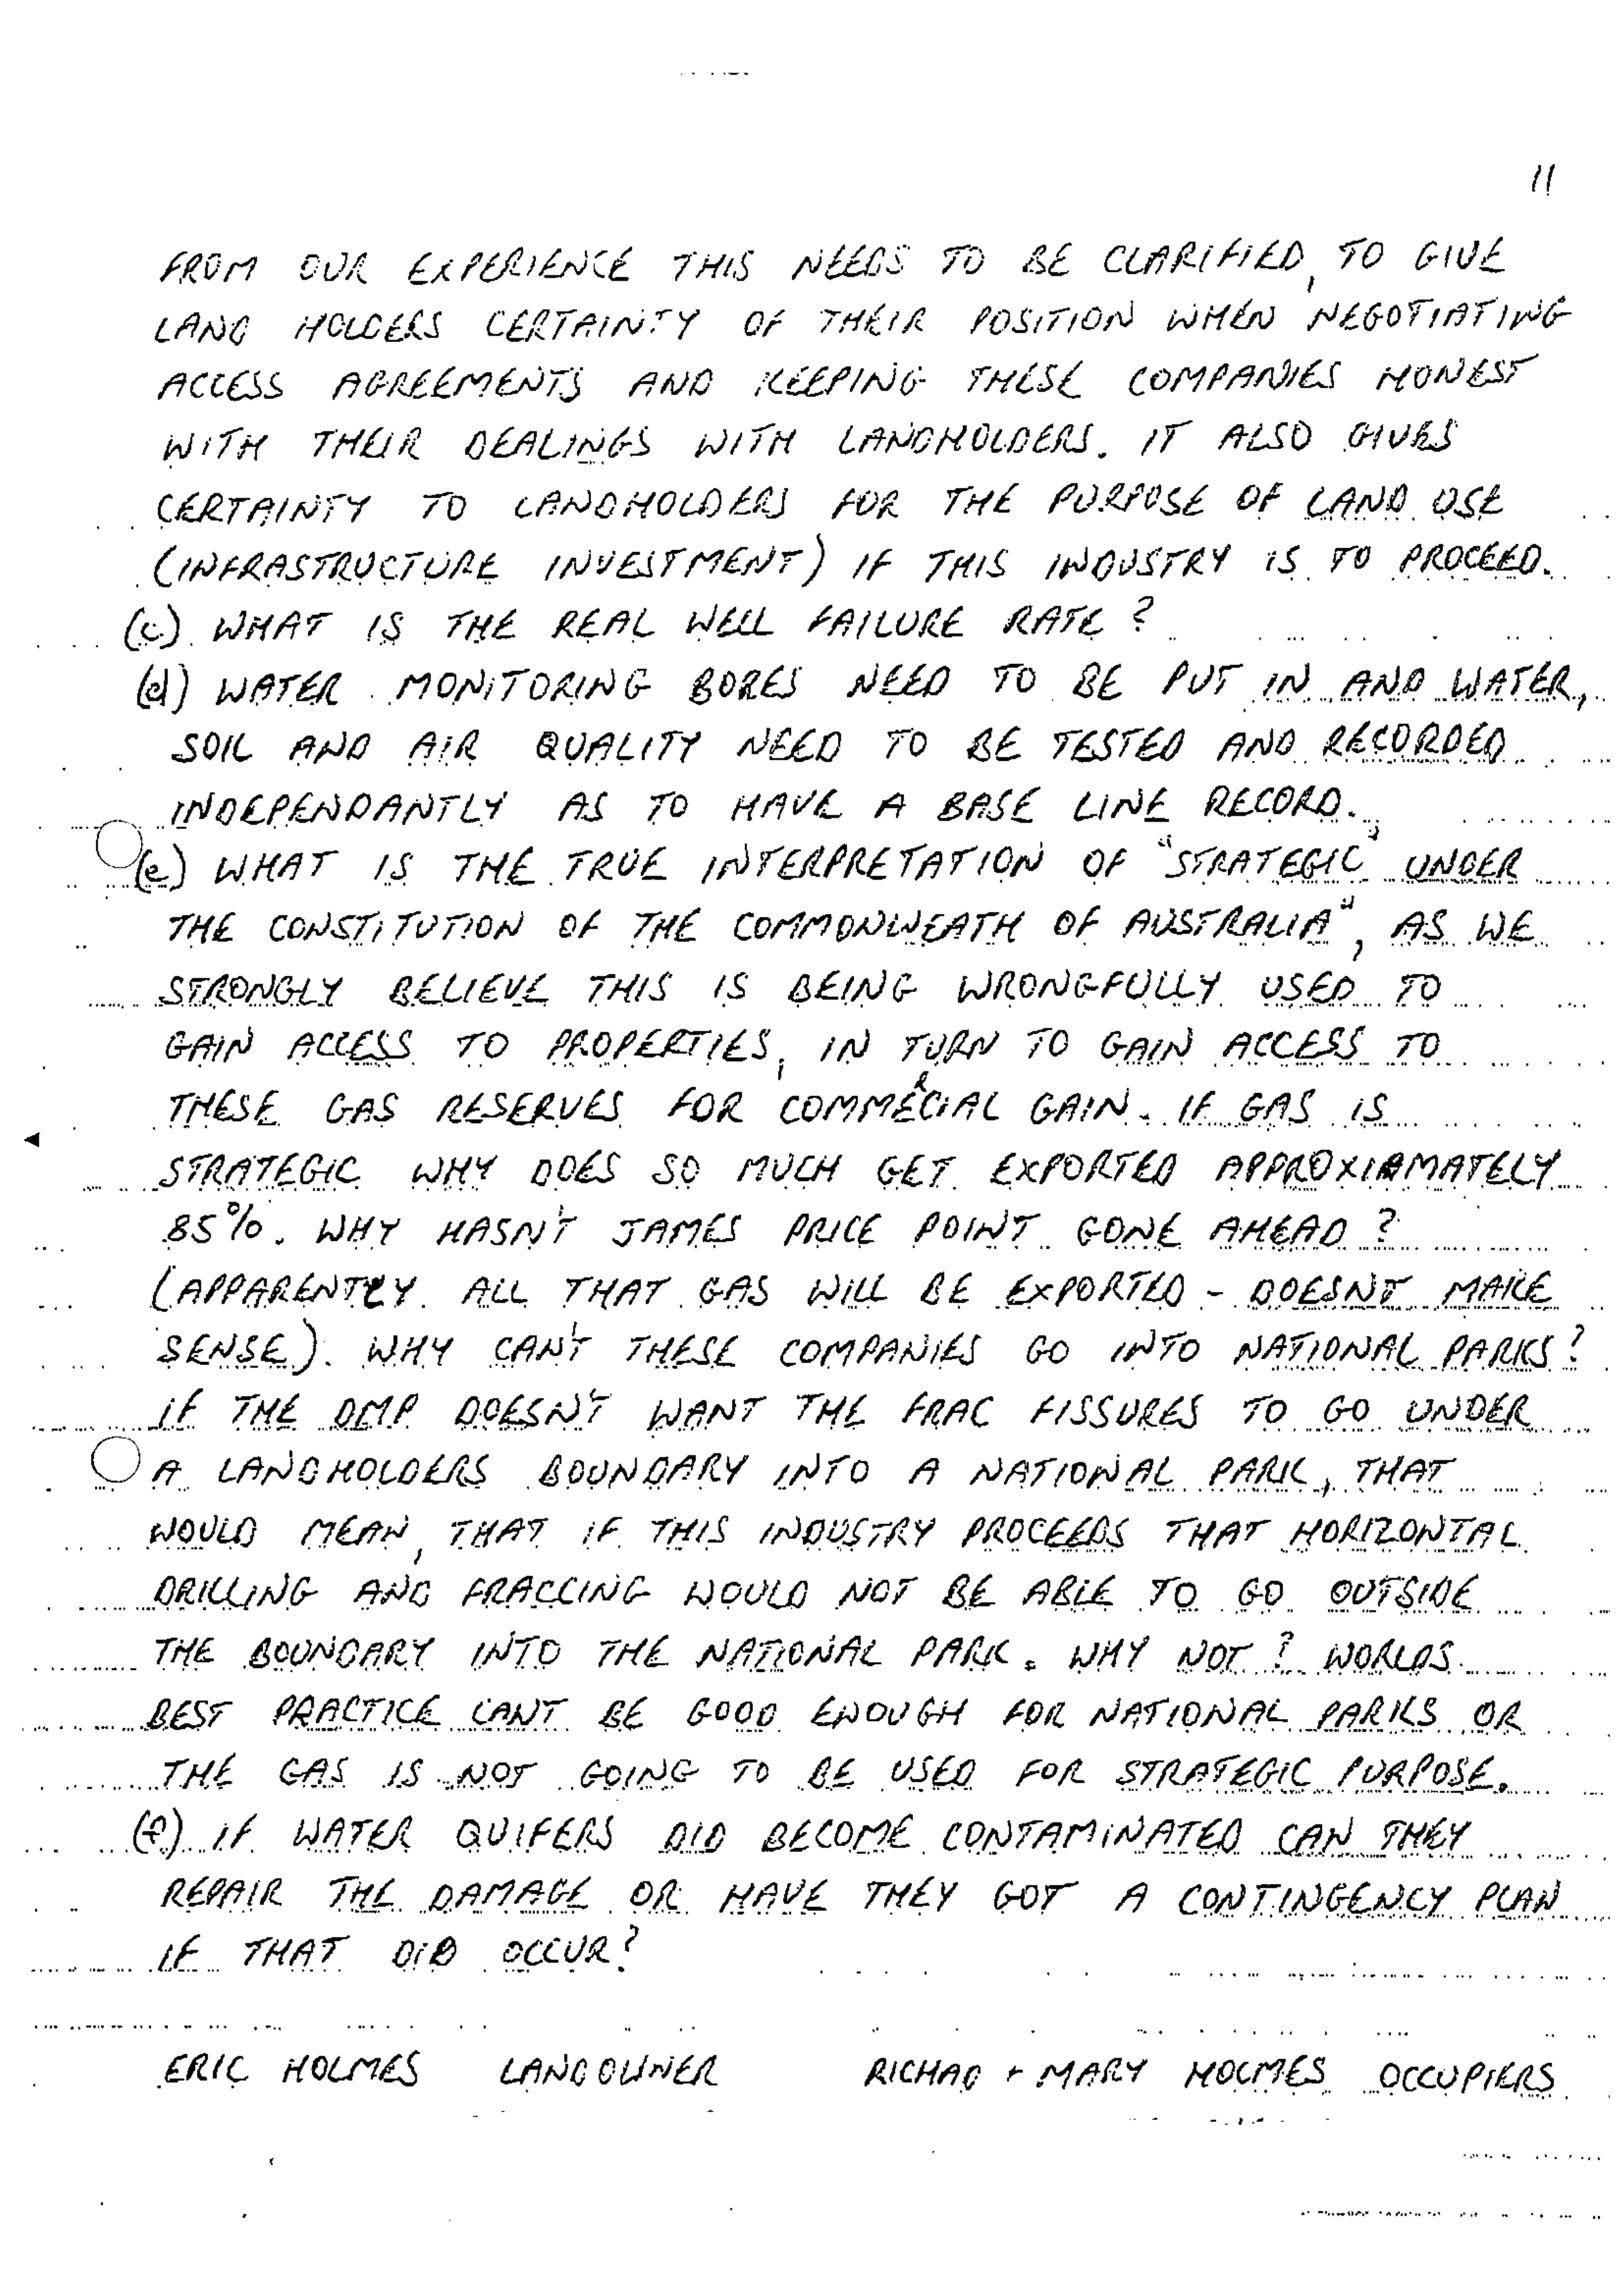 11
FROM OUR EXPERIENCE THIS NEEDS TO BE CLARIFIED, TO GIVE
LAND HOLDERS CERTAINTY OF THEIR POSITION WHEN NEGOTIATING
ACCESS AGREEMENTS AND KEEPING THESE COMPANIES HONEST
WITH THEIR DEALINGS WITH LANDHOLDERS. IT ALSO GIVES
CERTAINTY TO LANDHOLDERS FOR THE PURPOSE OF LAND USE
(INFRASTRUCTURE INVESTMENT) IF THIS INDUSTRY IS TO PROCEED.
(c) WHAT IS THE REAL WELL FAILURE RATE?
(d) WATER MONITORING BORES NEED TO BE PUT IN AND WATER,
SOIL AND AIR QUALITY NEED TO BE TESTED AND RECORDED
INDEPENDANTLY AS TO HAVE A BASE LINE RECORD.
(e) WHAT IS THE TRUE INTERPRETATION OF "STRATEGIC" UNDER
THE CONSTITUTION OF THE COMMONWEATH OF AUSTRALIA", AS WE
STRONGLY BELIEVE THIS IS BEING WRONGFULLY USED TO
GAIN ACCESS TO PROPERTIES, IN TURN TO GAIN ACCESS TO
THESE GAS RESERVES FOR COMMERCIAL GAIN. IF GAS IS
STRATEGIC WHY DOES SO MUCH GET EXPORTED APPROXIAMATELY
85%. WHY HASN'T JAMES PRICE POINT GONE AHEAD?
(APPARENTLY ALL THAT GAS WILL BE EXPORTED - DOESNT MAKE
SENSE). WHY CAN'T THESE COMPANIES GO INTO NATIONAL PARKS?
IF THE DMP DOESN'T WANT THE FRAC FISSURES TO GO UNDER
A LANDHOLDERS BOUNDARY INTO A NATIONAL PARK, THAT
WOULD MEAN, THAT IF THIS INDUSTRY PROCEEDS THAT HORIZONTAL
DRILLING AND FRACCING WOULD NOT BE ABLE TO GO OUTSIDE
THE BOUNDARY INTO THE NATIONAL PARK. WHY NOT? WORLDS
BEST PRACTICE CANT BE GOOD ENOUGH FOR NATIONAL PARKS OR
THE GAS IS NOT GOING TO BE USED FOR STRATEGIC PURPOSE.
(f) IF WATER QUIFERS DID BECOME CONTAMINATED CAN THEY
REPAIR THE DAMAGE OR HAVE THEY GOT A CONTINGENCY PLAN
IF THAT DID OCCUR?
ERIC HOLMES LANDOWNER RICHAD + MARY HOLMES OCCUPIERS